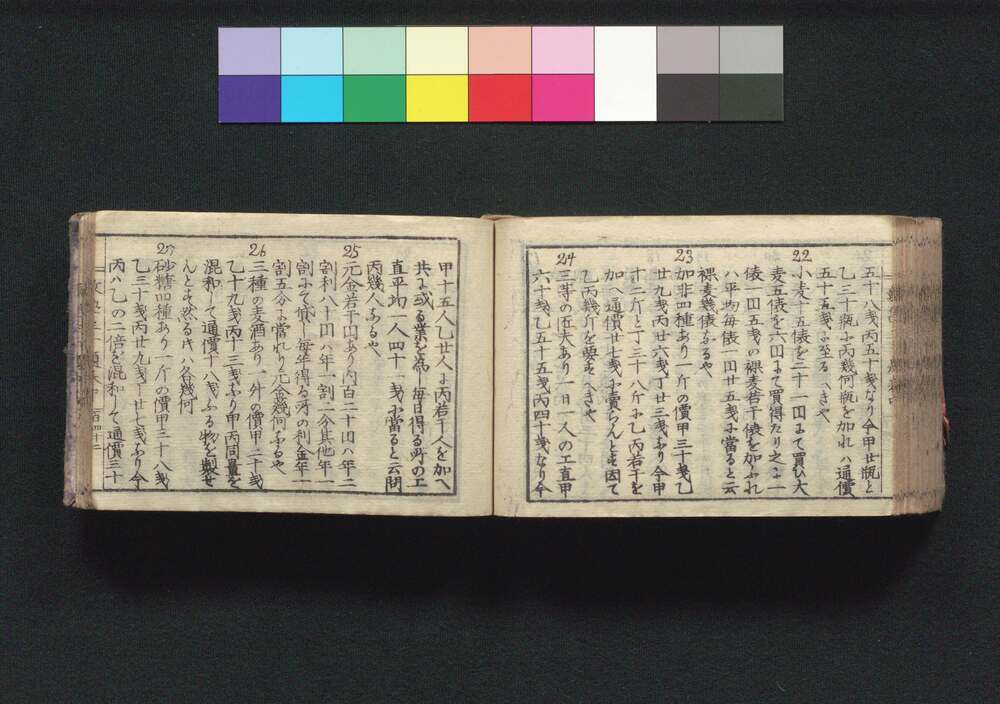 五十八戔丙五十戔なり今甲廿瓶と
乙三十瓶ふ丙幾何瓶を加れハ通價
五十五戔ふ至るへきや
22
小麦十五俵を二十一円にて買ひ大
麦五俵を六円にて買得たり之に一
俵一円五戔の裸麦若干俵を加ふれ
ハ平均毎俵一円廿五戔ふ當ると云
裸麦幾俵なるや
23
加非四種あり一斤の價甲三十戔乙
廿九戔丙廿六戔丁廿三戔ふり今甲
十二斤と丁三十八斤ふ乙丙若干を
加へ通價廿七戔ふ賣らんとを因て
乙丙幾斤を要をへきや
24
三等の匠夫あり一日一人の工直甲
六十戔乙五十五戔丙四十戔なり今
甲十五人乙廿人に丙若干人を加へ
共に或る業を為し毎日得る所の工
直平均一人四十一戔ふ當ると云問
丙幾人ふるや
25
元金若干円あり内百二十円ハ年二
割利八十円ハ年一割二分其他年一
割ふて貸し毎年得る所の利金年一
割五分に當れり元金幾何ふるや
26
三種の麦酒あり一升の價甲二十戔
乙十九戔丙十三戔ふり甲丙同量を
混和して通價十八戔ふる物を製せ
んとを然るときハ各幾何
27
砂糖四種あり一斤の價甲三十八戔
乙三十戔丙廿九戔丁廿七戔ふり今
丙ハ乙の二倍を混和して通價三十